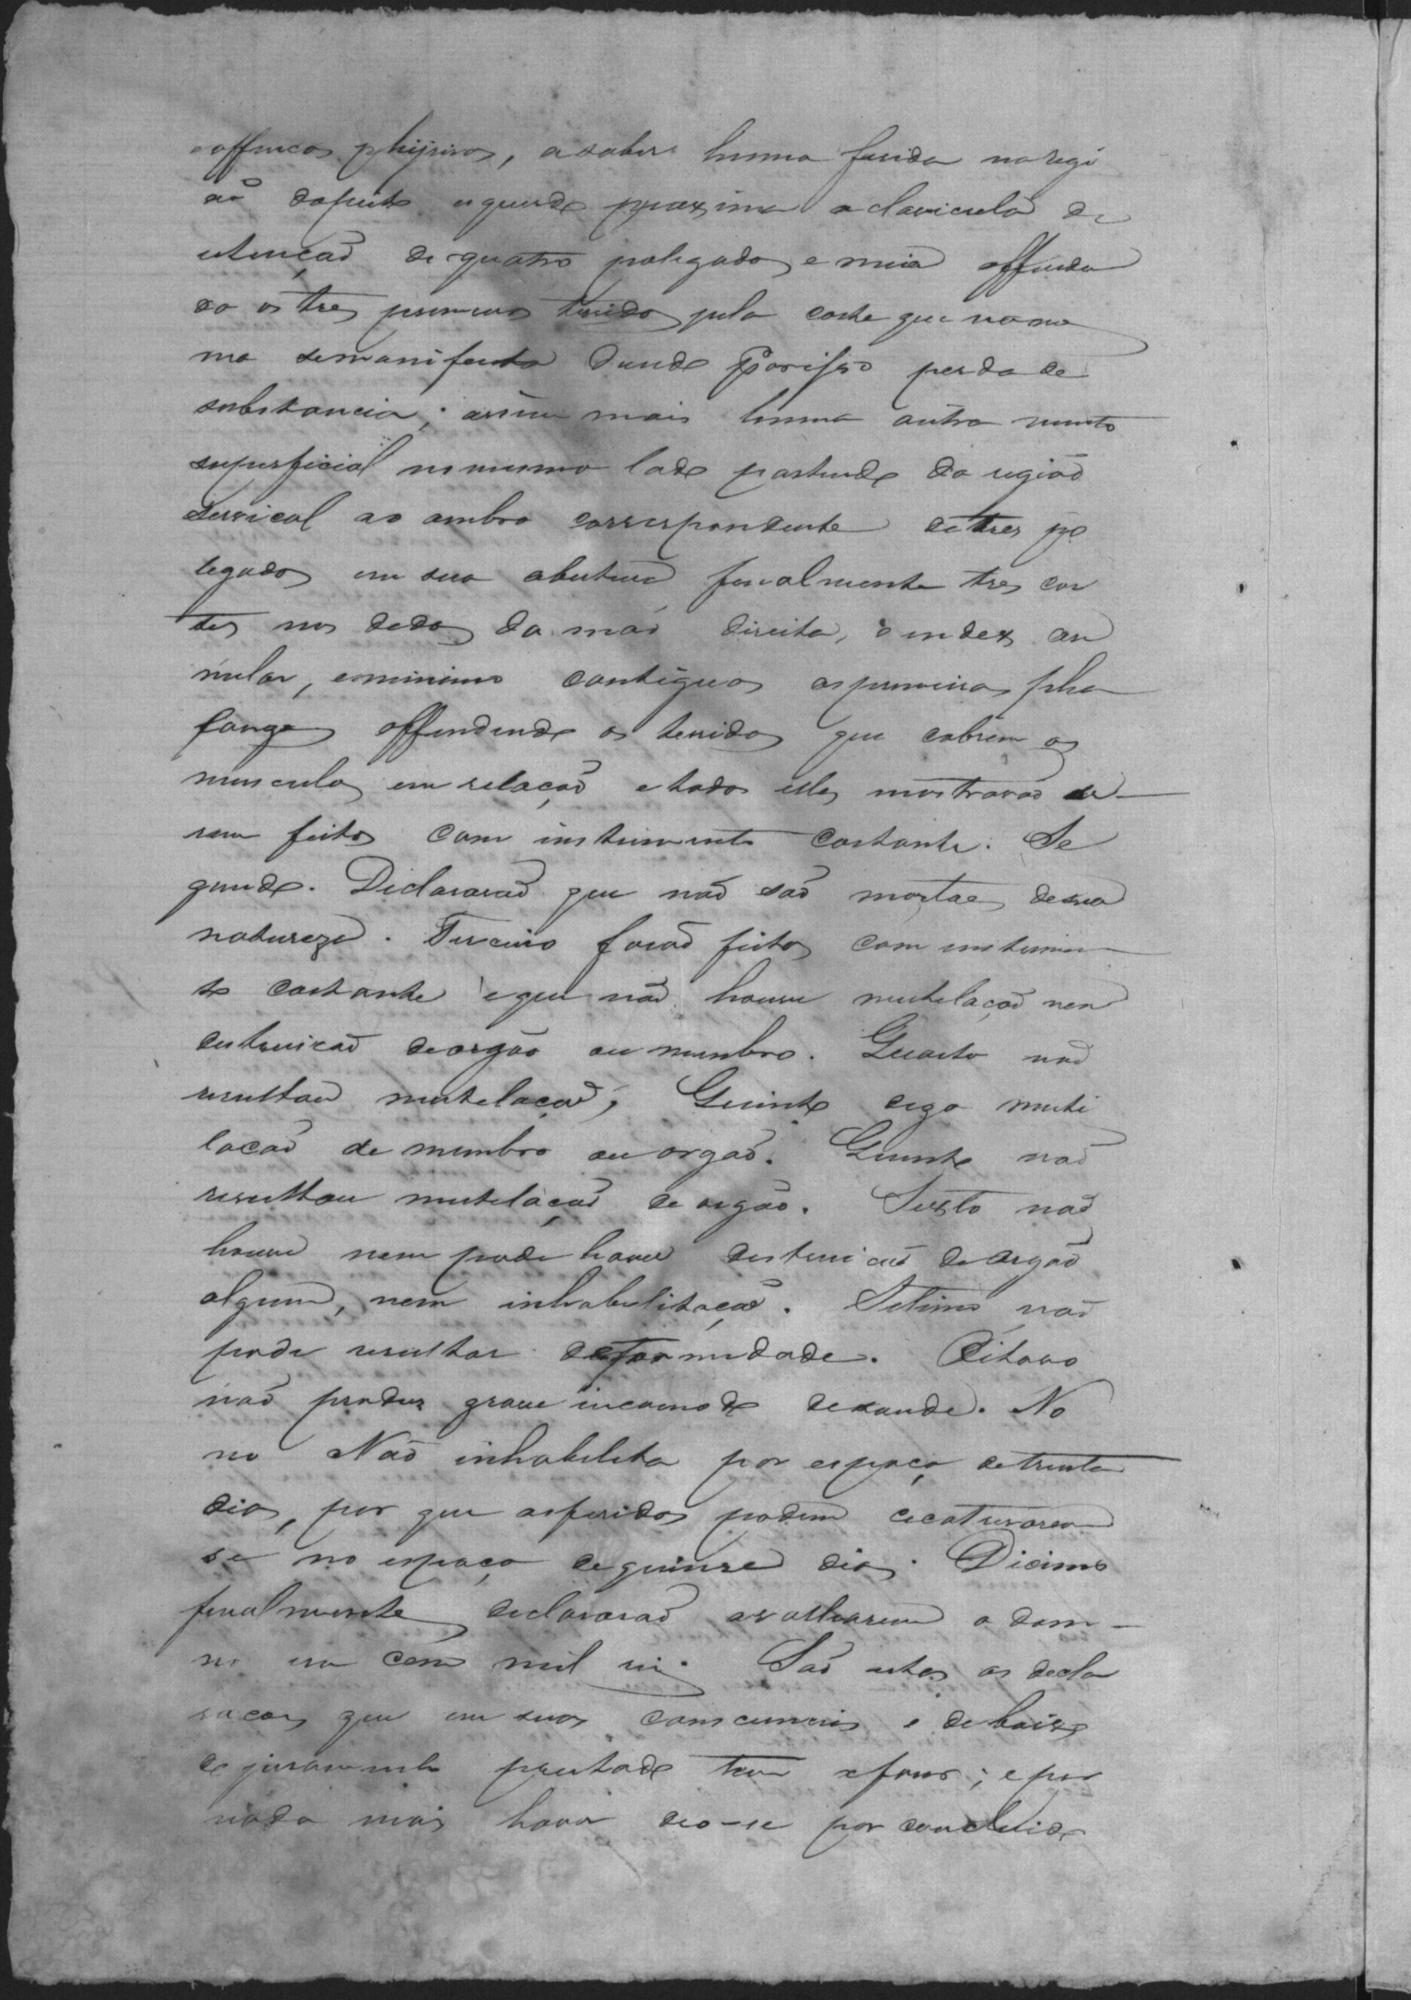 offencas phijsicas, a saber huma ferida na regi
aõ do peito esquerdo proxima a clavicula de
istencaõ de quatro polegadas e meia offenden
do os tres primeiros tecidos pelo corte que na mes
ma se manifesta dando por isso perda de
substancia; assim mais huma outra muito
superficial no mesmo lado partindo da regiaõ
servical ao ombro correspondente de tres po
legadas em sua abertura finalmente tres cor
tes nos dedos da maõ direita, o index an
nular, e minimo contiguos as primeiras pha
langes offendendo os tecidos que cobrem os
musculos em relaçaõ e todos elles mostravaõ se
rem feitos com instrumento cortante. Se
gundo. Declararaõ que naõ saõ mortaes de sua
natureza. Terceiro foraõ feitos com instrumen
to cortante e que naõ houve mutelaçaõ nem
destruicaõ de orgaõ ou membro. Quarto naõ
resultou mutelaçaõ; Quinto digo muti
lacaõ de membro ou orgaõ. Quinto naõ
resultou mutelaçaõ de orgaõ. Sexto naõ
houve nem pode haver destruicaõ de orgaõ
algum, nem inhabelitaçaõ. Setimo naõ
pode resultar deformidade. Oitavo
naõ produz grave incomodo de saude. No
no Naõ inhabelita por espaço de trinta
dias, por que as feridas podem cecatrizarem
se no espaço de quinze dias. Dicimo
finalmente declararaõ avaliarem o dam
no em cem mil reis. Saõ estas as decla
racoes que em suas consciencias e debaixo
de juramento prestado tem a fazer; e por
nada mais haver deo-se por concluido